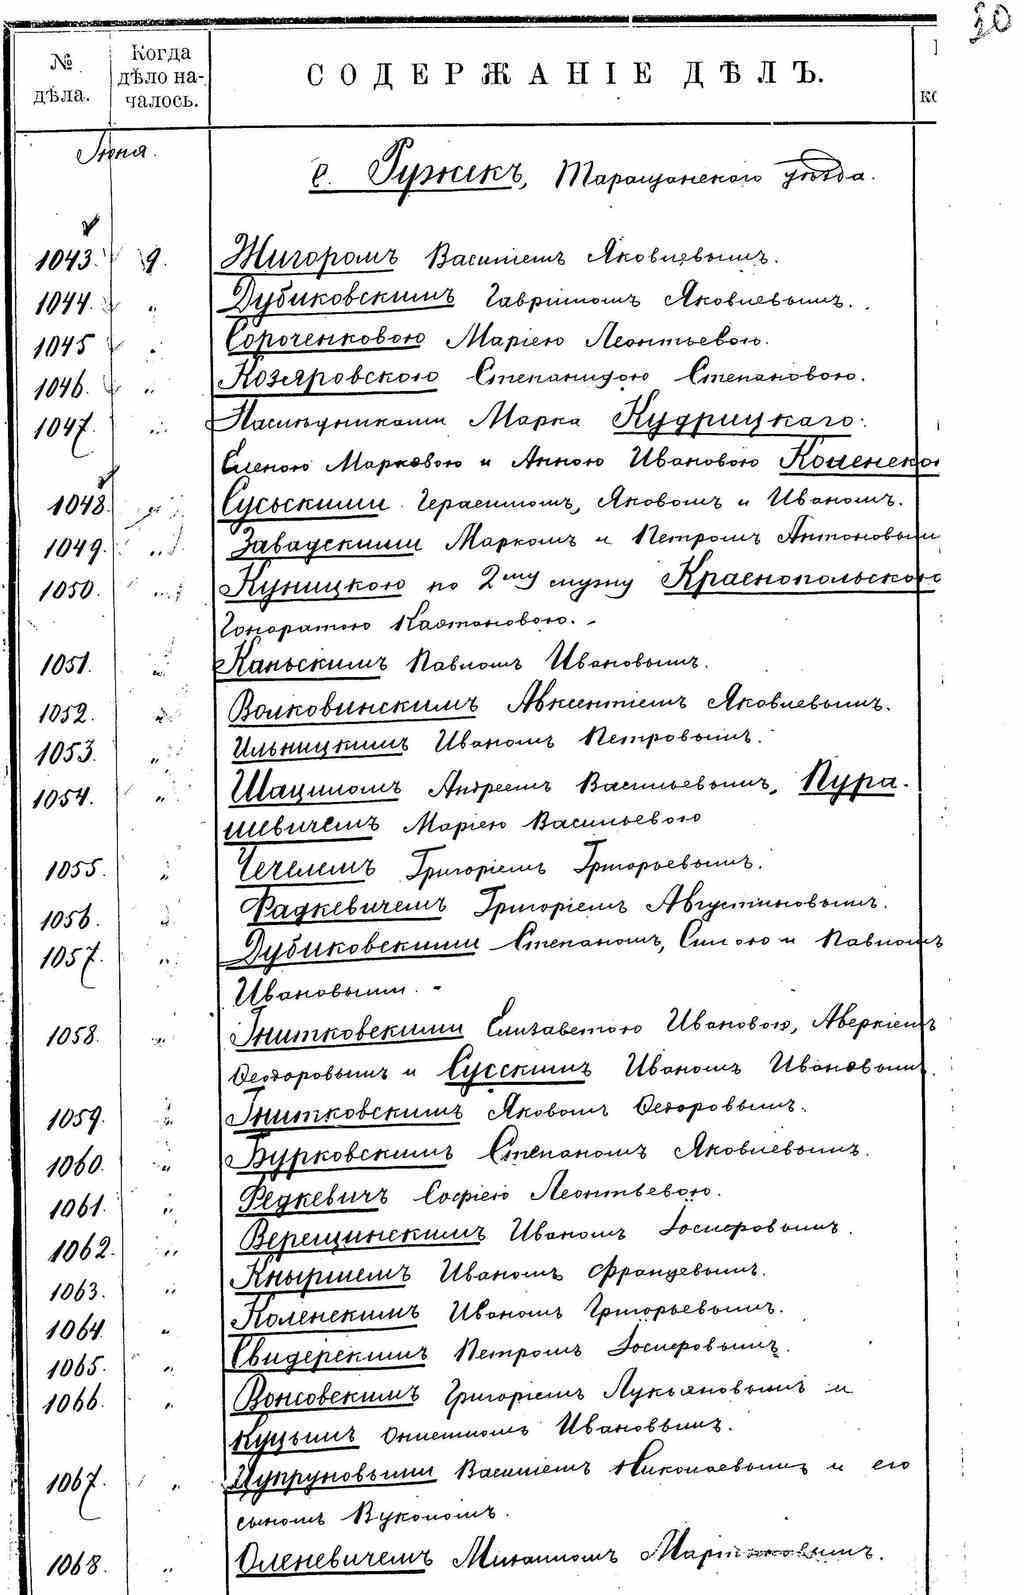 20
№ дѣла. Когда дѣло на- чалось. СОДЕРЖАНІЕ ДѢЛЪ.
Іюня.
с. Ружекъ, Таращанского уѣзда.
1043. 9. Жигоромъ Василіемъ Яковлевымъ.
1044. " Дубиковскимъ Гавріиломъ Яковлевымъ.
1045 " Сороченковою Маріею Леонтьевою.
1046. " Козляровскою Степанидою Степановою.
1047. " Наслѣдниками Марка Кудрицкаго:
Еленою Марковою и Анною Ивановою Коленскою
1048. " Сусьскими Герасимомъ, Яковомъ и Иваномъ.
1049. " Завадскими Маркомъ и Петромъ Антоновыми
1050. " Куницкою по 2му мужу Краснопольскою
Гоноратою Каэтановою.
1051. " Каньскимъ Павломъ Ивановымъ.
1052. " Волковинскимъ Авксентіемъ Яковлевымъ.
1053. " Ильницкимъ Иваномъ Петровымъ.
1054. " Шациломъ Андреемъ Васильевымъ, Пура-
шевичемъ Маріею Васильевою
1055. " Чечелемъ Григоріемъ Григорьевымъ.
1056. " Радкевичемъ Григоріемъ Августиновымъ.
1057. " Дубиковскими Степаномъ, Силою и Павломъ
Ивановыми.
1058. " Гнитковскими Елизаветою Ивановою, Аверкіемъ
Ѳеодоровымъ и Сусскимъ Иваномъ Ивановымъ.
1059. " Гнитковскимъ Яковомъ Ѳедоровымъ.
1060. " Бурковскимъ Степаномъ Яковлевымъ.
1061. " Редкевичъ Софіею Леонтьевою.
1062. " Верещинскимъ Иваномъ Іосифовымъ.
1063. " Кнышемъ Иваномъ Францевымъ.
1064. " Коленскимъ Иваномъ Григорьевымъ.
1065. " Свидерскимъ Петромъ Іосифовымъ.
1066. " Вонсовскимъ Григоріемъ Лукьяновымъ и
Куцымъ Онисимомъ Ивановымъ.
1067. " Цупруновыми Василіемъ Николаевымъ и его
сыномъ Вуколомъ.
1068. " Оленевичемъ Михаиломъ